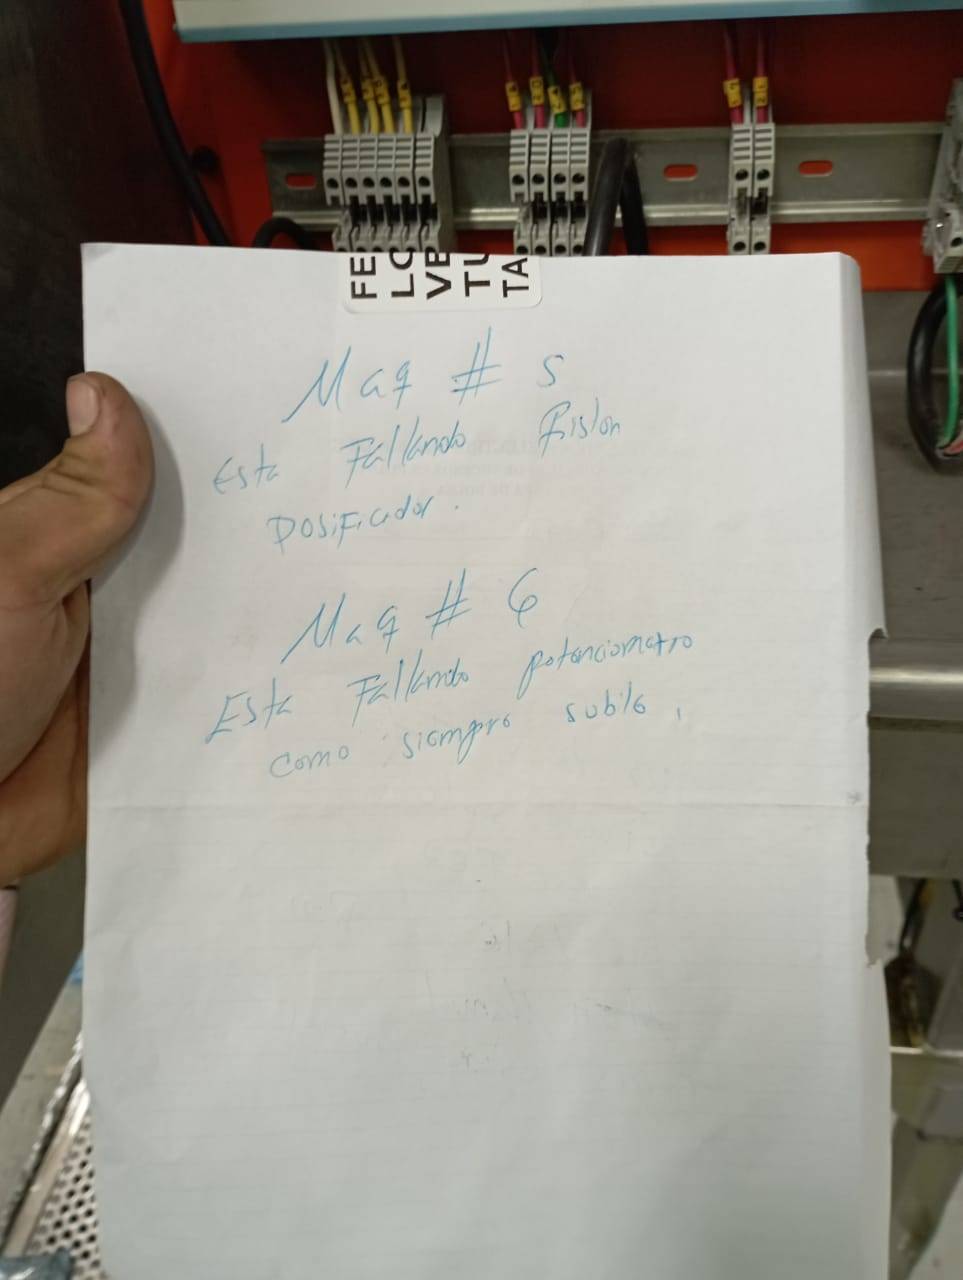 FE
LO
VE
TU
TA
Maq # 5
Esta Fallando Piston
Dosificador.
Maq # 6
Esta Fallando potenciometro
como siempre subile,